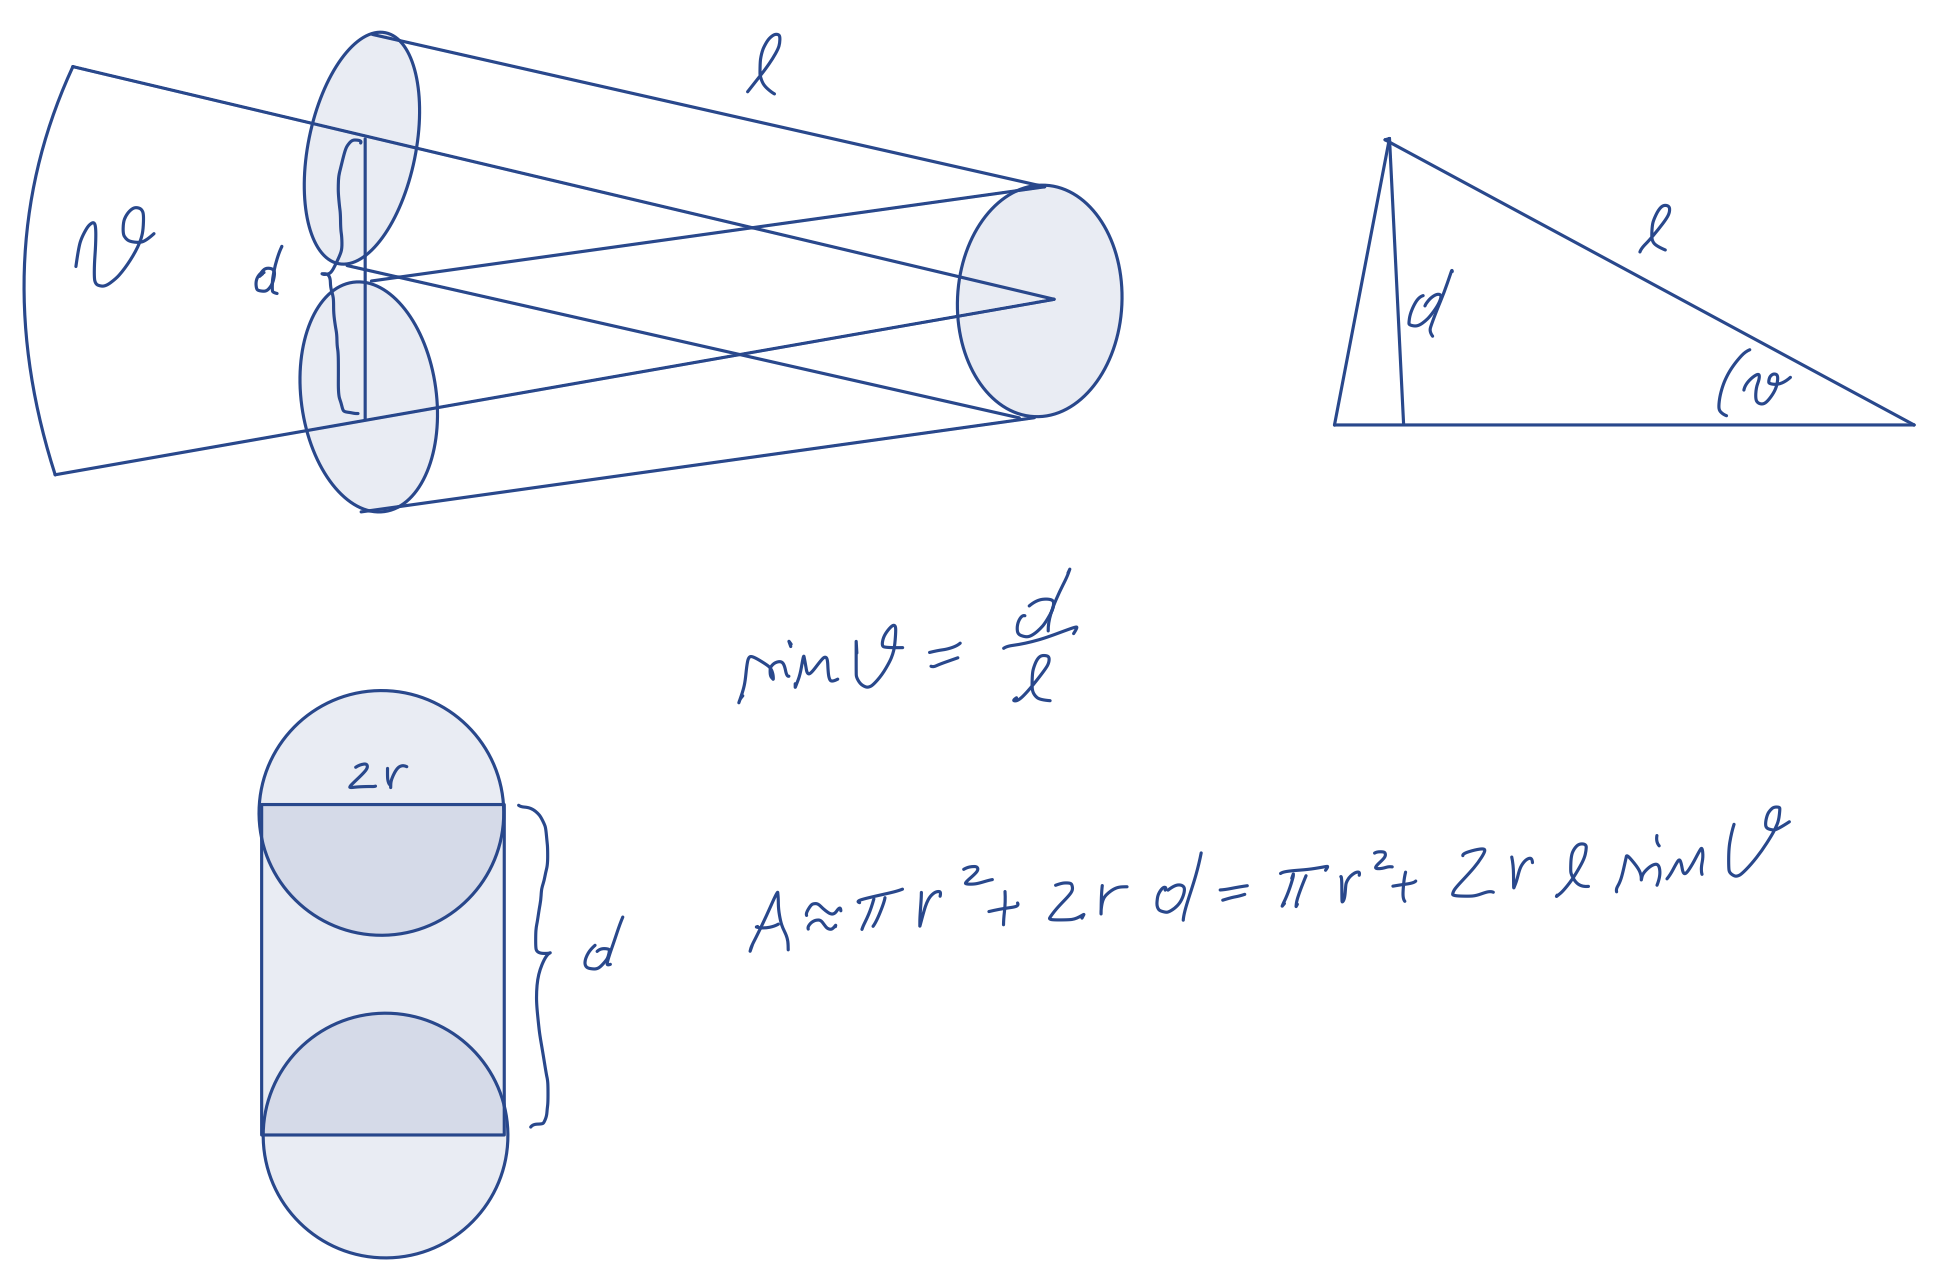 l
ϑ
d
l
d
ϑ
sin ϑ = d/l
2r
d
A ≈ πr² + 2r d = πr² + 2r l sin ϑ